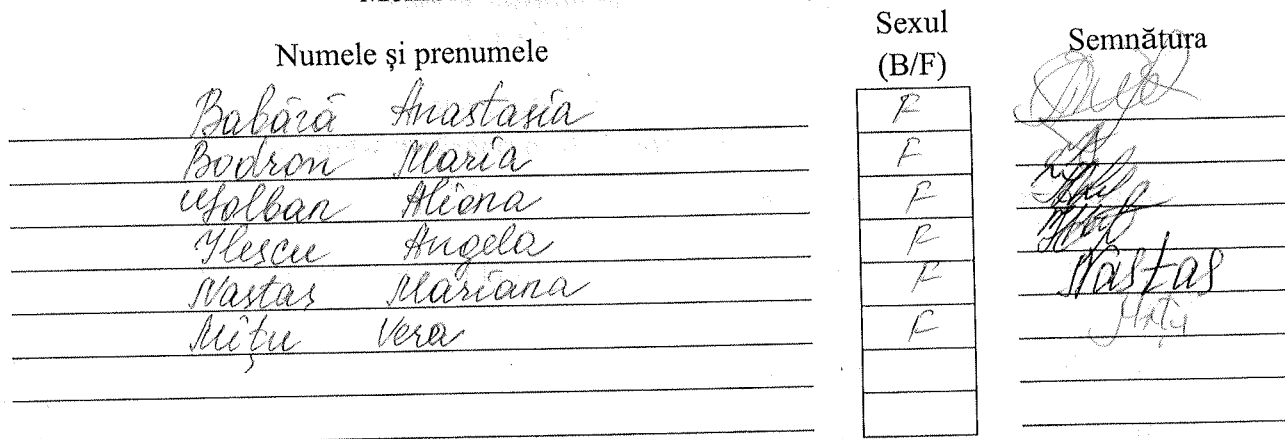 Numele și prenumele Sexul (B/F) Semnătura
Babără Anastasia F
Bodron Maria F
Golban Aliona F
Ilescu Angela F
Nastas Mariana F Nastas
Mițu Vera F Mițu